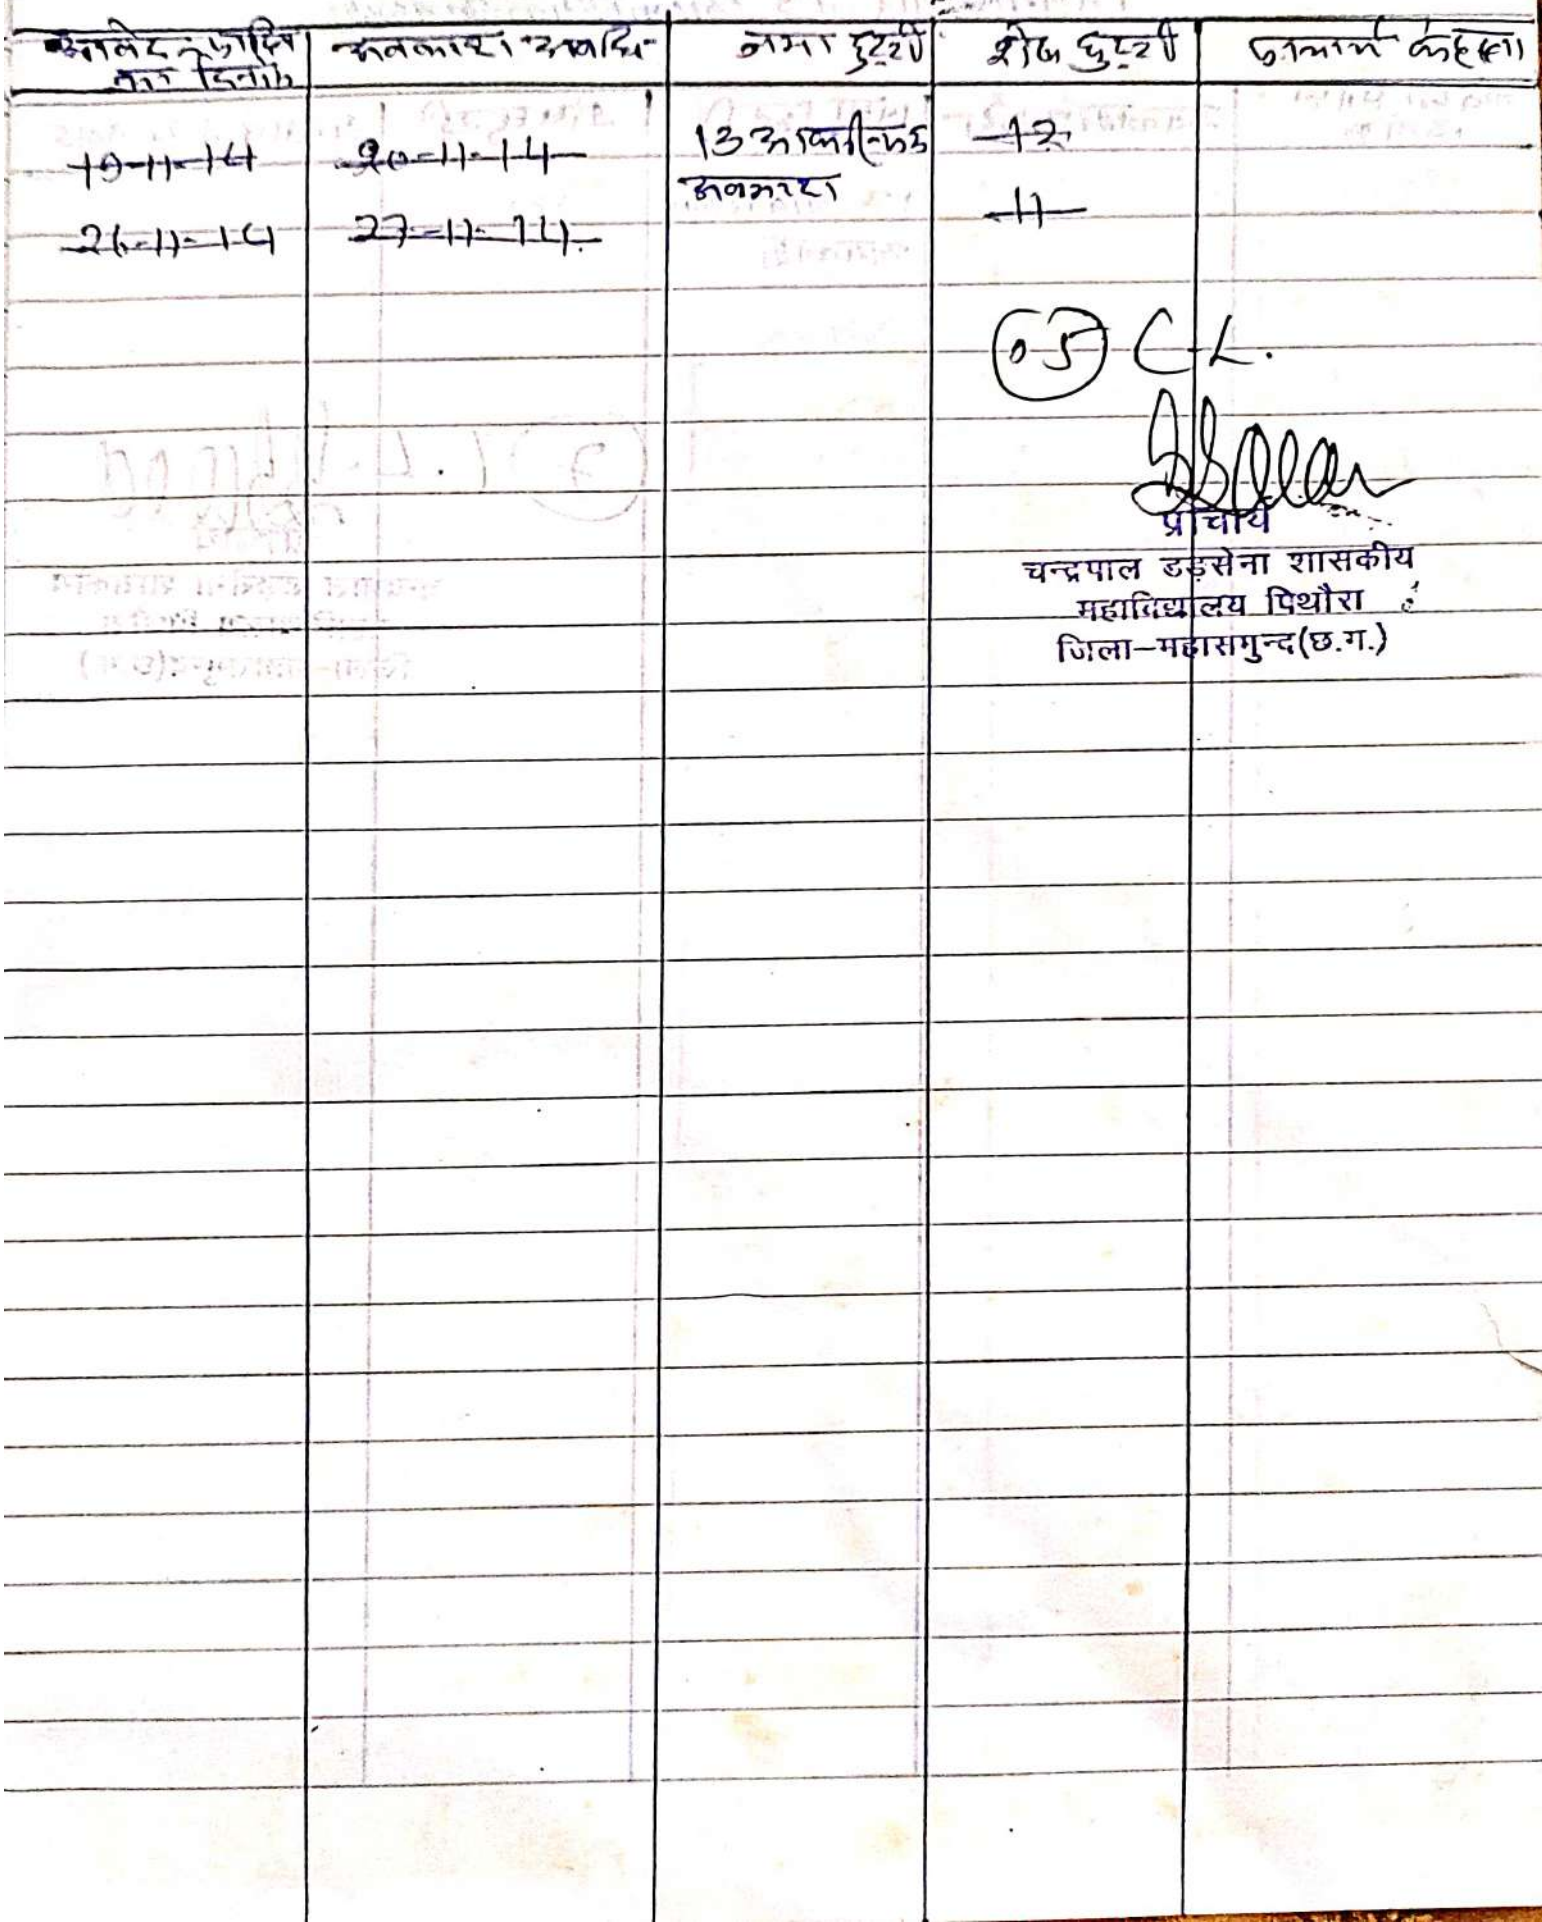 आवेदन प्राप्ति का दिनांक	अवकाश अवधि	जमा छुट्टी	शेष छुट्टी	प्राचार्य के हस्ता
19-11-14	20-11-14	13 आकस्मिक अवकाश	12
26-11-14	27-11-14		11
05 C.L.
प्राचार्य
चन्द्रपाल डड़सेना शासकीय
महाविद्यालय पिथौरा
जिला-महासमुन्द(छ.ग.)